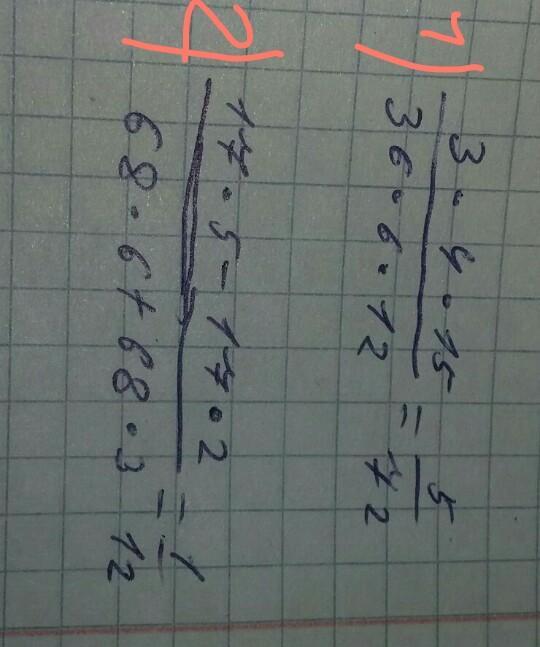 1)
3 · 4 · 15
36 · 6 · 12
=
5
72
2)
17 · 5 - 17 · 2
68 · 6 + 68 · 3
=
1
12